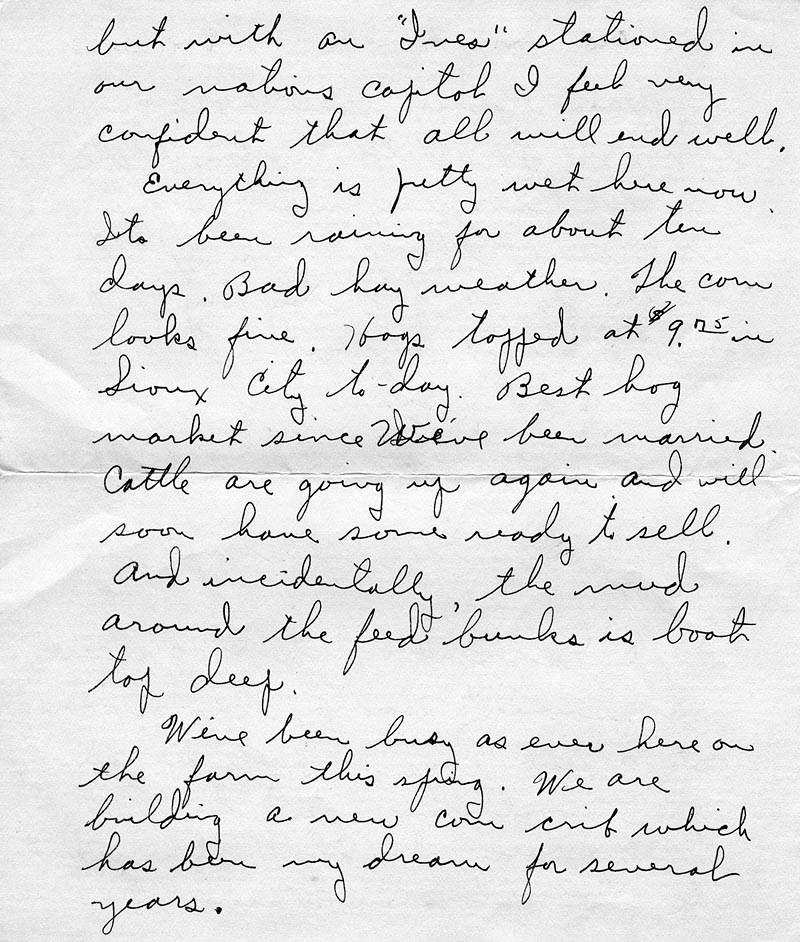 but with an "Ives" stationed in
our nations capitol I feel very
confident that all will end well.
Everything is pretty wet here now.
Its been raining for about ten
days. Bad hay weather. The corn
looks fine. Hogs topped at $9.75 in
Sioux City to-day. Best hog
market since We've been married.
Cattle are going up again and will
soon have some ready to sell.
And incidentally, the mud
around the feed bunks is boot
top deep.
We've been busy as ever here on
the farm this spring. We are
building a new corn crib which
has been my dream for several
years.